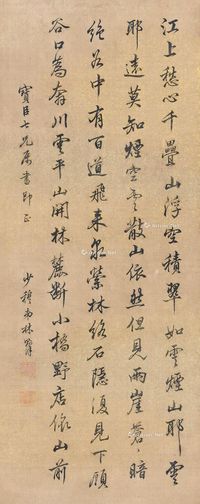 江上愁心千疊山浮空積翠如雲煙山耶雲
耶遠莫知煙空雲散山依然但見兩崖蒼蒼暗
絕谷中有百道飛來泉縈林絡石隱復見下顧
谷口為奔川雲平山開林麓斷小橋野店依山前
寶臣七兄屬書即正
少穆弟林